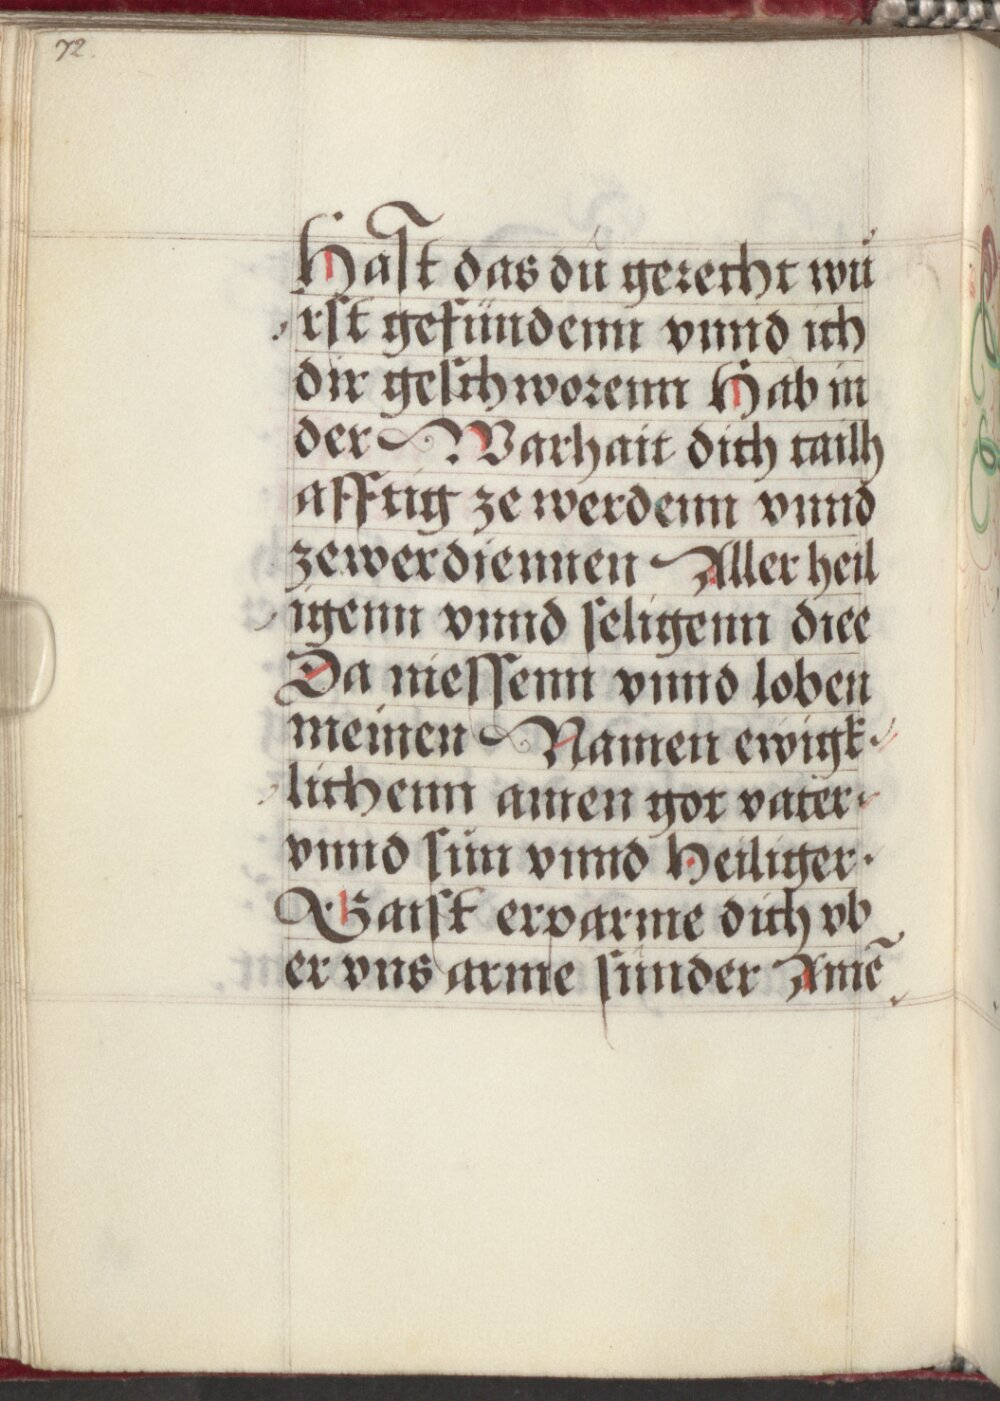 72.
Hast das du gerecht wu
rst gefündenn vnnd ich
dir geschworenn Hab in
der Warhait dich tailh
afftig ze werdenn vnnd
zewerdiennen Aller heil
igenn vnnd seligenn diee
Da niessenn vnnd loben
meinen Namen ewigk
lichenn amen got vater
vnnd sün vnnd Heiliger
Gaist erparme dich vb
er vns arme sünder Amē